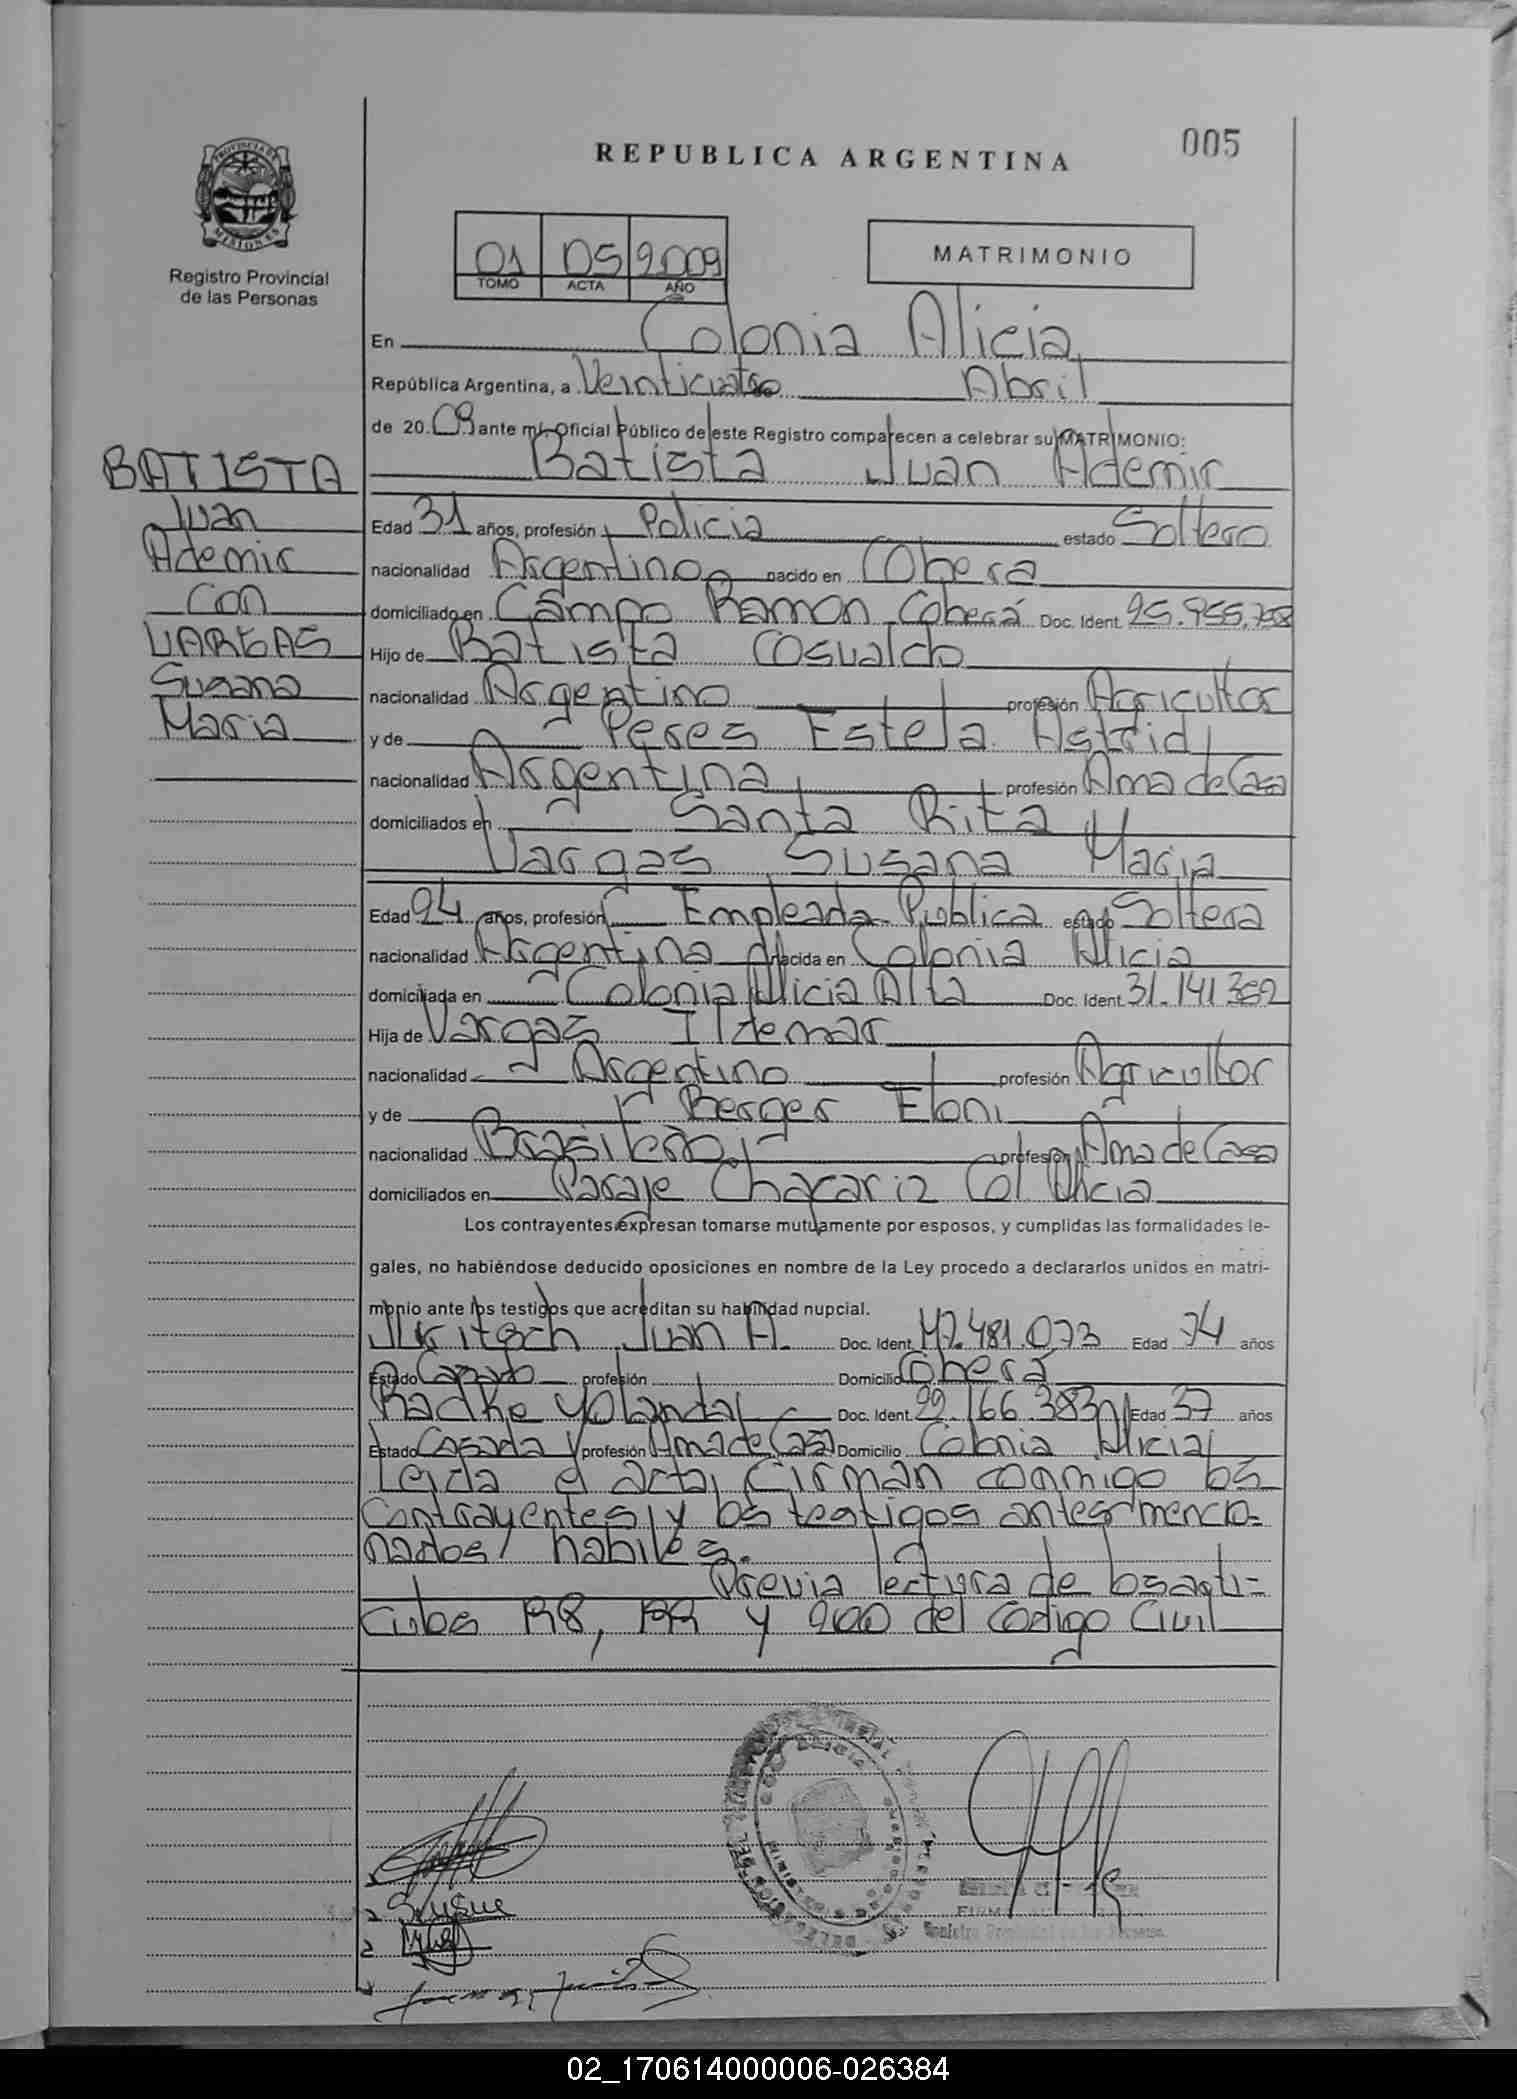 005
REPUBLICA ARGENTINA
PROVINCIA DE
MISIONES
Registro Provincial
de las Personas
01 05 2009
TOMO ACTA AÑO
MATRIMONIO
En Colonia Alicia
República Argentina, a Veinticuatro Abril
de 2009 ante mí, Oficial Público de este Registro comparecen a celebrar su MATRIMONIO:
Batista Juan Ademir
BATISTA
Juan
Ademir
con
VARGAS
Susana
Maria
Edad 31 años, profesión Policia estado Soltero
nacionalidad Argentino nacido en Obera
domiciliado en Campo Ramon Oberá Doc. Ident. 25.955.758
Hijo de Batista Osualdo
nacionalidad Argentino profesión Agricultor
y de Peres Estela Astrid
nacionalidad Argentina profesión Ama de Casa
domiciliados en Santa Rita
Vargas Susana Maria
Edad 24 años, profesión Empleada Publica estado Soltera
nacionalidad Argentina nacida en Colonia Alicia
domiciliada en Colonia Alicia Alta Doc. Ident. 31.141.362
Hija de Vargas Ildemar
nacionalidad Argentino profesión Agricultor
y de Berger Eloni
nacionalidad profesión Ama de Casa
domiciliados en Paraje Col Alicia
Los contrayentes expresan tomarse mutuamente por esposos, y cumplidas las formalidades le-
gales, no habiéndose deducido oposiciones en nombre de la Ley procedo a declararlos unidos en matri-
monio ante los testigos que acreditan su habilidad nupcial.
Juan A. Doc. Ident. M7.481.073 Edad 74 años
Estado Casado profesión Domicilio Oberá
Radke Yolanda Doc. Ident. 22.166.383 Edad 37 años
Estado Casada profesión Ama de Casa Domicilio Colonia Alicia
Leida el acta, firman conmigo los
Contrayentes y los testigos antes mencio=
nados habiles.
Previa lectura de los arti=
culos y 200 del Codigo Civil
02_170614000006-026384